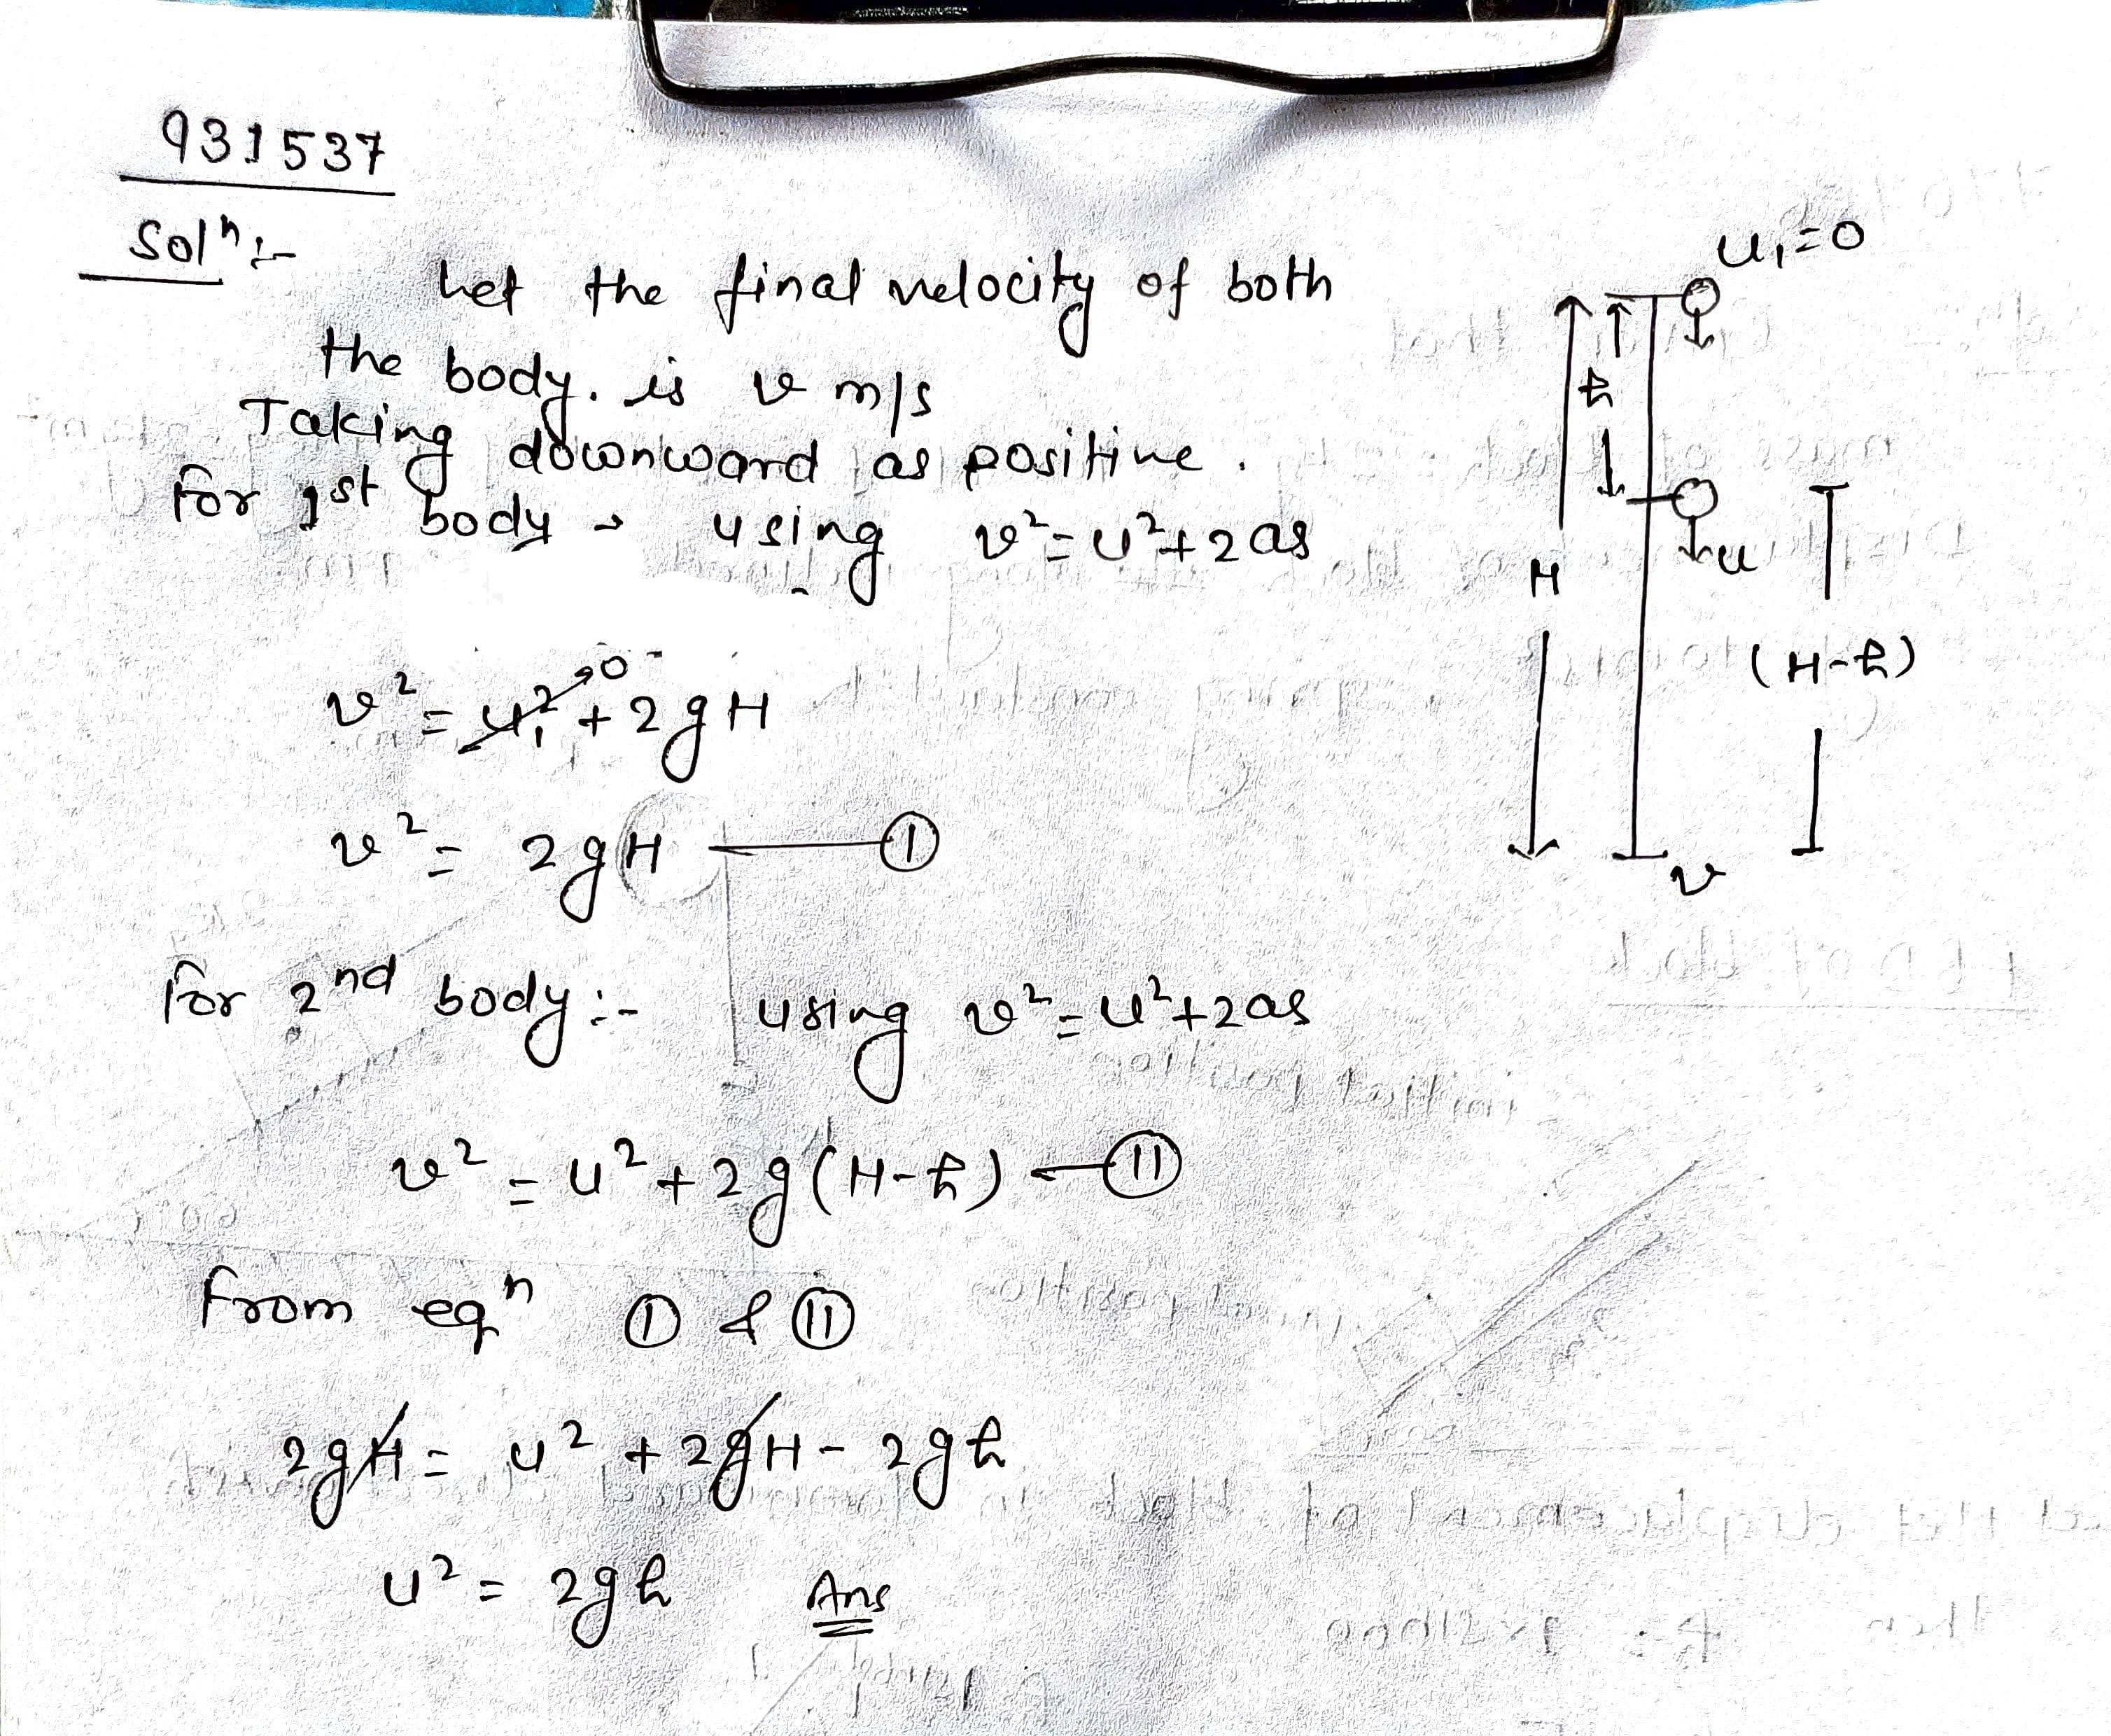 931537
Solⁿ:-
Let the final velocity of both
the body. is v m/s
Taking downward as positive.
for 1st body → using v² = u² + 2as
v² = u₁² → 0 + 2gH
v² = 2gH —— Ⓘ
for 2nd body :- using v² = u² + 2as
v² = u² + 2g(H-h) — ⓘⓘ
from eqⁿ Ⓘ & ⓘⓘ
2gH = u² + 2gH - 2gh
u² = 2gh Ans
u₁=0
h
u
H
(H-h)
v